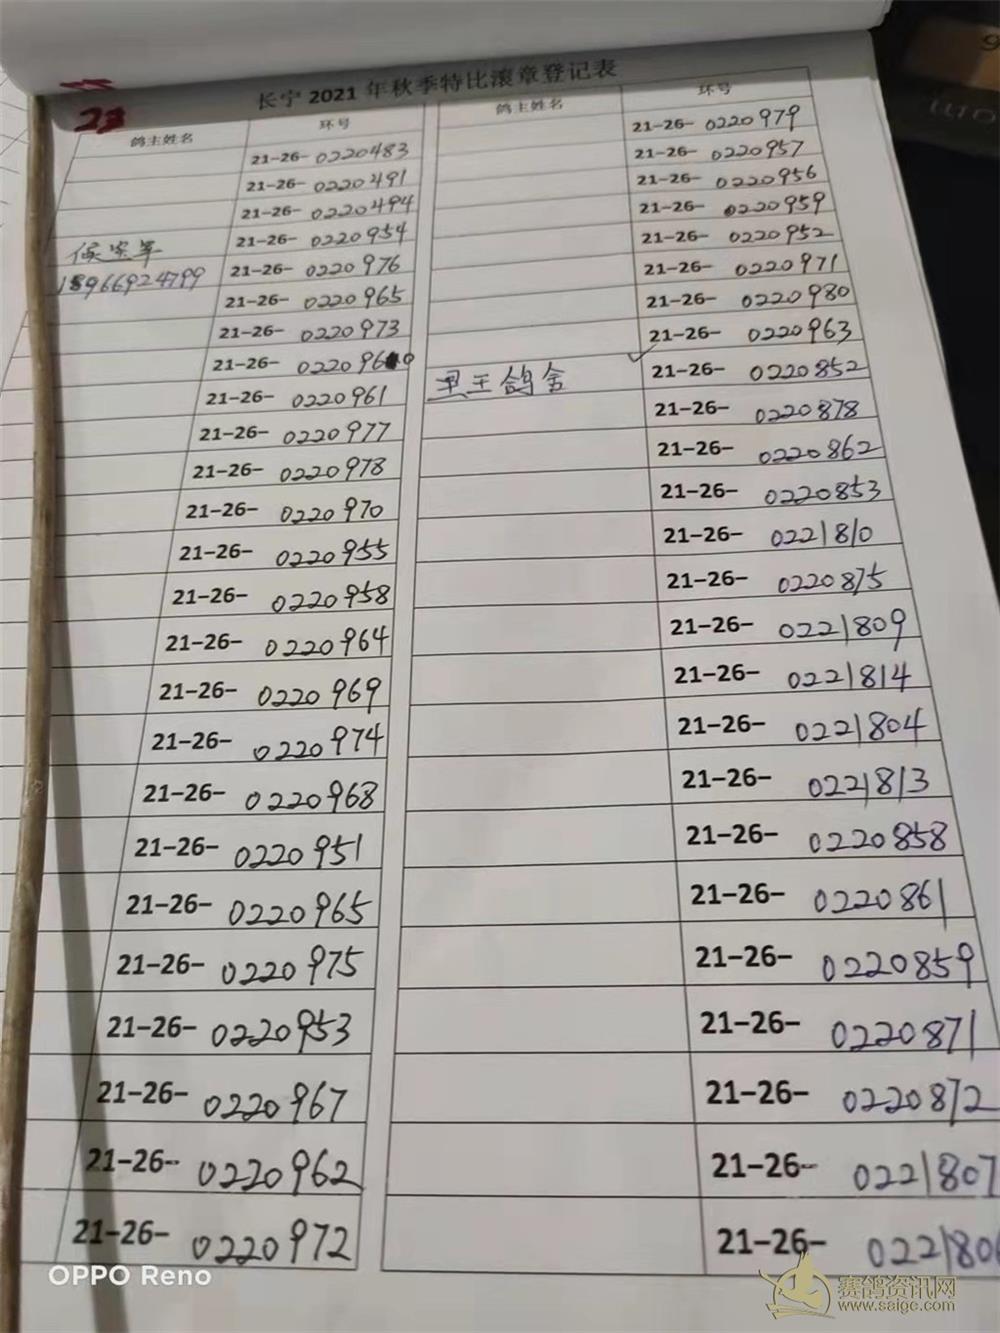 23
长宁2021年秋季特比滚章登记表
鸽主姓名 环号
21-26-0220483
21-26-0220491
21-26-0220494
21-26-0220954
21-26-0220976
18966924799
21-26-0220965
21-26-0220973
21-26-0220960
21-26-0220961
21-26-0220977
21-26-0220978
21-26-0220970
21-26-0220955
21-26-0220958
21-26-0220964
21-26-0220969
21-26-0220974
21-26-0220968
21-26-0220951
21-26-0220965
21-26-0220975
21-26-0220953
21-26-0220967
21-26-0220962
21-26-0220972
鸽主姓名 环号
21-26-0220979
21-26-0220957
21-26-0220956
21-26-0220959
21-26-0220952
21-26-0220971
21-26-0220980
21-26-0220963
王鸽舍 21-26-0220852
21-26-0220878
21-26-0220862
21-26-0220853
21-26-0221810
21-26-0220875
21-26-0221809
21-26-0221814
21-26-0221804
21-26-0221813
21-26-0220858
21-26-0220861
21-26-0220859
21-26-0220871
21-26-0220872
21-26-0221807
21-26-022180
OPPO Reno
赛鸽资讯网
www.saige.com